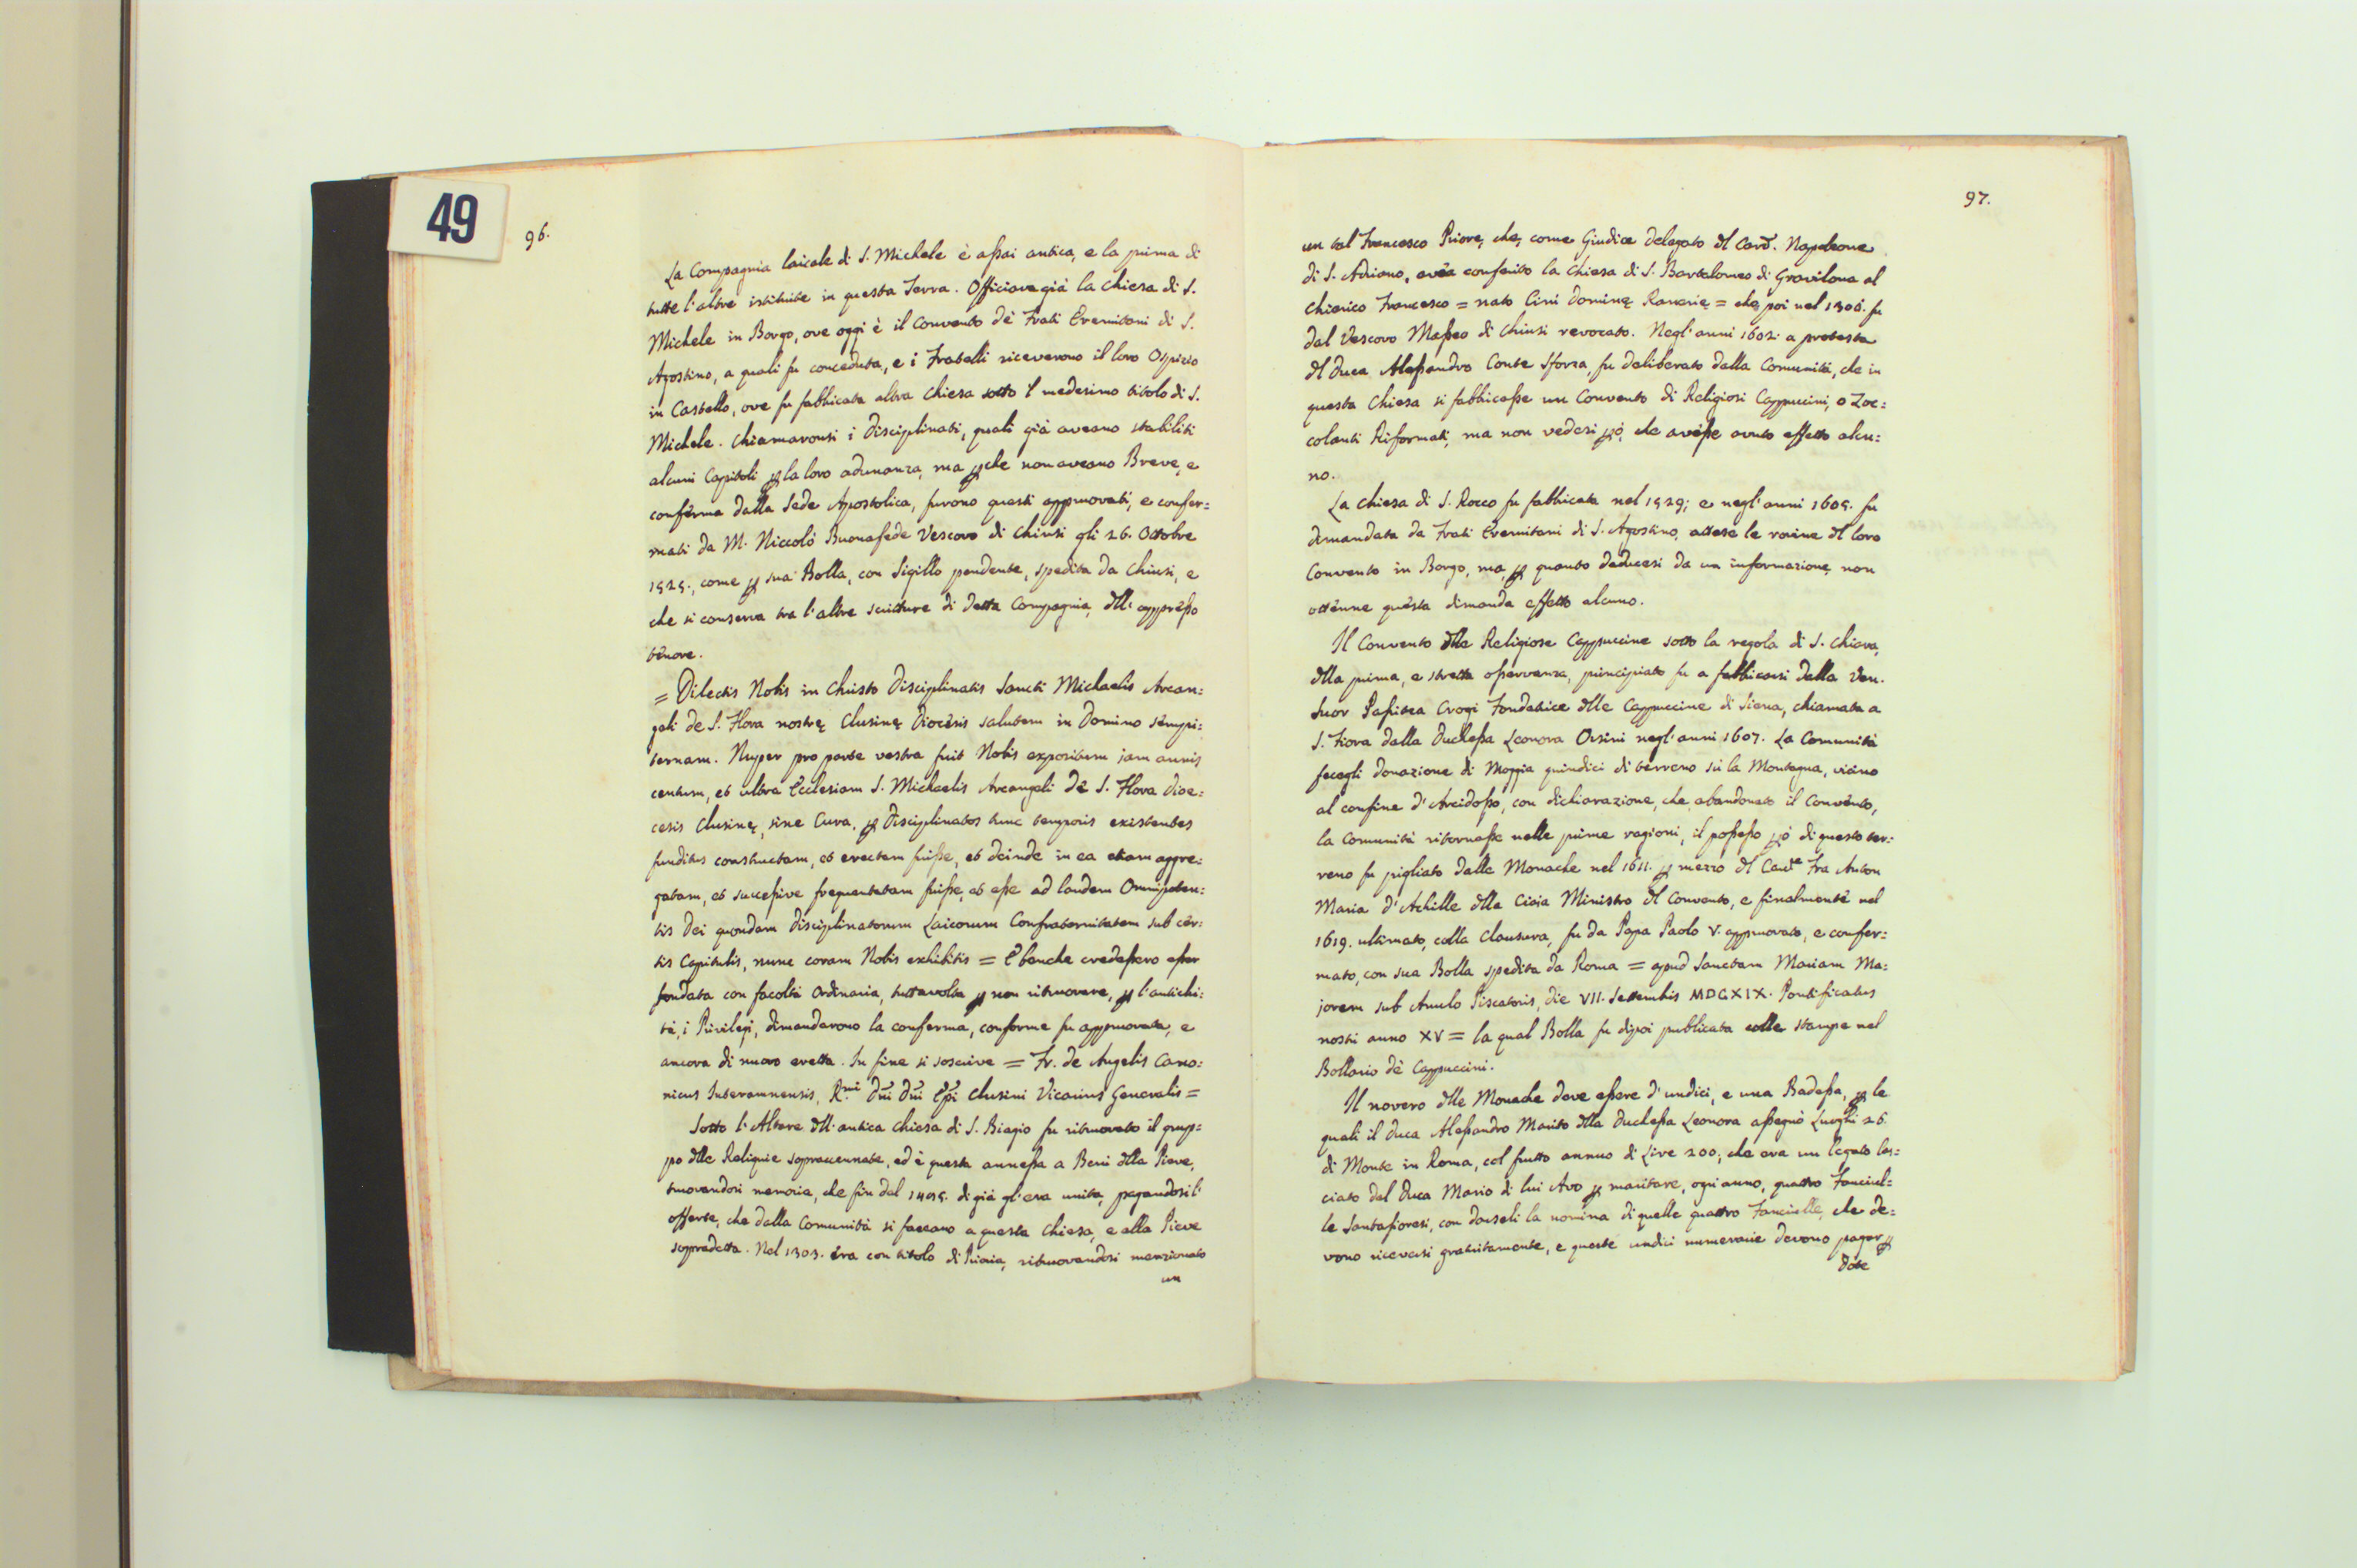 49
96.
La Compagnia laicale di S. Michele è assai antica, e la prima di
tutte l'altre istituite in questa Terra. Officiava già la Chiesa di S.
Michele in Borgo, ove oggi è il Convento dè Frati Eremitani di S.
Agostino, a quali fu conceduta, e i Fratelli riceverono il loro Ospizio
in Castello, ove fu fabbricata altra Chiesa sotto 'l medesimo titolo di S.
Michele. Chiamavonsi i Disciplinati, quali già aveano stabiliti
alcuni Capitoli p la loro adunanza, ma pche non aveano Breve, e
conferma dalla Sede Apostolica, furono questi approvati, e confer=
mati da M. Niccolò Buonafede Vescovo di Chiusi gli 26. Ottobre
1525., come p sua Bolla, con Sigillo pendente, spedita da Chiusi, e
che si conserva tra l'altre scritture di detta Compagnia, dll' appresso
tenore.
= Dilectis Nobis in Christo Disciplinatis Sancti Michaelis Arcan=
geli de S. Flora nostrę Clusinę Diocesis salutem in Domino sempi=
ternam. Nuper pro parte vestra fuit Nobis expositum jam annis
centum, et ultra Ecclesiam S. Michaelis Arcangeli de S. Flora Dioe=
cesis Clusinę, sine Cura, p Disciplinatos tunc temporis existentes
funditus constructam, et erectam fuisse, et deinde in ea etiam aggre=
gatam, et successive frequentatam fuisse, et esse ad laudem Omnipoten=
tis Dei quondam Disciplinatorum Laicorum Confraternitatem sub cer=
tis Capitulis, nunc coram Nobis exhibitis = E benche credessero esser
fondata con facoltà Ordinaria, tuttavolta p non ritruovare, p l'antichi=
tà, i Privilegi, dimandarono la conferma, conforme fu appruovata, e
ancora di nuovo eretta. In fine si soscrive = Fr. de Angelis Cano=
nicus Interamnensis, R.mi Dni Dni Epi Clusini Vicarius Generalis =
Sotto l'Altare dll'antica Chiesa di S. Biagio fu ritruovato il grup=
po dlle Reliquie sopraccennate, ed è questa annessa a Beni dlla Pieve,
truovandosi memoria, che fin dal 1495. di già gl'era unita, pagandosi l'
offerte, che dalla Comunità si faceano a questa Chiesa, e alla Pieve
sopradetta. Nel 1303. èra con titolo di Prioria, ritruovandosi menzionato
un
97.
un tal Francesco Priore, che, come Giudice delegato dl Card. Napoleone
di S. Adriano, avea conferito la Chiesa di S. Bartolomeo di Gravilona al
Chierico Francesco = nato Cini Dominę Ranerię = che poi nel 1306. fu
dal Vescovo Masseo di Chiusi revocato. Negl'anni 1602. a protesta
dl Duca Alessandro Conte Sforza, fu deliberato dalla Comunità, che in
questa Chiesa si fabbricasse un Convento di Religiosi Cappuccini, o Zoc=
colanti Riformati, ma non vedesi pò, che avesse avuto effetto alcu=
no.
La Chiesa di S. Rocco fu fabbricata nel 1529; e negl'anni 1605. fu
dimandata da Frati Eremitani di S. Agostino, attese le rovine dl loro
Convento in Borgo, ma, p quanto deducesi da un informazione, non
ottenne questa dimanda effetto alcuno.
Il Convento dlle Religiose Cappuccine sotto la regola di S. Chiara,
dlla prima, e stretta osservanza, principiato fu a fabbricarsi dalla Ven.
Suor Passitea Crogi Fondatrice dlle Cappuccine di Siena, chiamata a
S. Fiora dalla Duchessa Leonora Orsini negl'anni 1607. La Comunità
fecegli donazione di Moggia quindici di terreno sù la Montagna, vicino
al confine d'Arcidosso, con dichiarazione, che, abandonato il Convento,
la Comunità ritornasse nelle prime ragioni, il possesso pò di questo ter=
reno fu pigliato dalle Monache nel 1611. p mezzo dl Caude Fra Anton
Maria d'Achille dlla Ciaia Ministro dl Convento, e finalmente nel
1619. ultimato, colla Clausura, fu da Papa Paolo V. appruovato, e confer=
mato, con sua Bolla spedita da Roma = apud Sanctam Mariam Ma=
jorem sub Anulo Piscatoris, die VII. Settembris MDCXIX. Pontificatus
nostri anno XV = la qual Bolla fu dipoi publicata colle stampe nel
Bollario dè Cappuccini.
Il novero dlle Monache deve essere d'undici, e una Badessa, p le
quali il Duca Alessandro Marito dlla Duchessa Leonora assegnò Luoghi 26.
di Monte in Roma, col frutto annuo di Lire 200., che era un legato las=
ciato dal Duca Mario di lui Avo p maritare, ogni anno, quattro Fanciul=
le Santafioresi, con darseli la nomina di quelle quattro Fanciulle, che de=
vono riceversi gratuitamente, e queste undici numerarie devono pagar p
dote